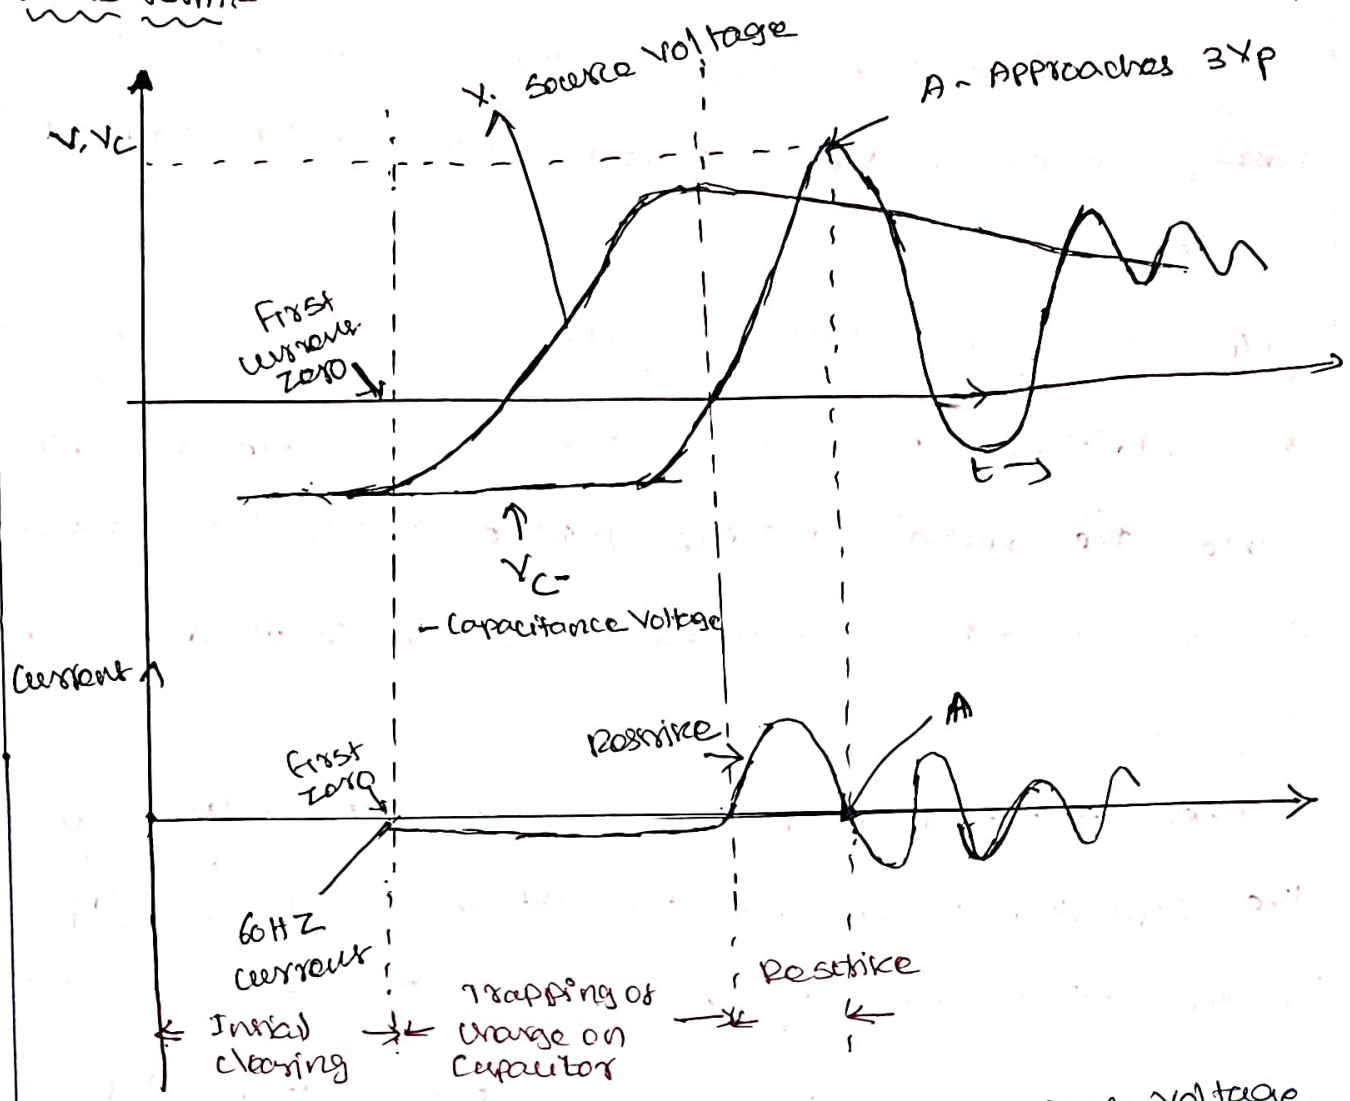 V. Source Voltage
A - Approaches 3Vp
V, Vc
First
current
zero
t →
Vc -
- Capacitance Voltage
Current
Restrike
A
First
zero
60HZ
current
Restrike
Initial
clearing
Trapping of
charge on
Capacitor
Voltage